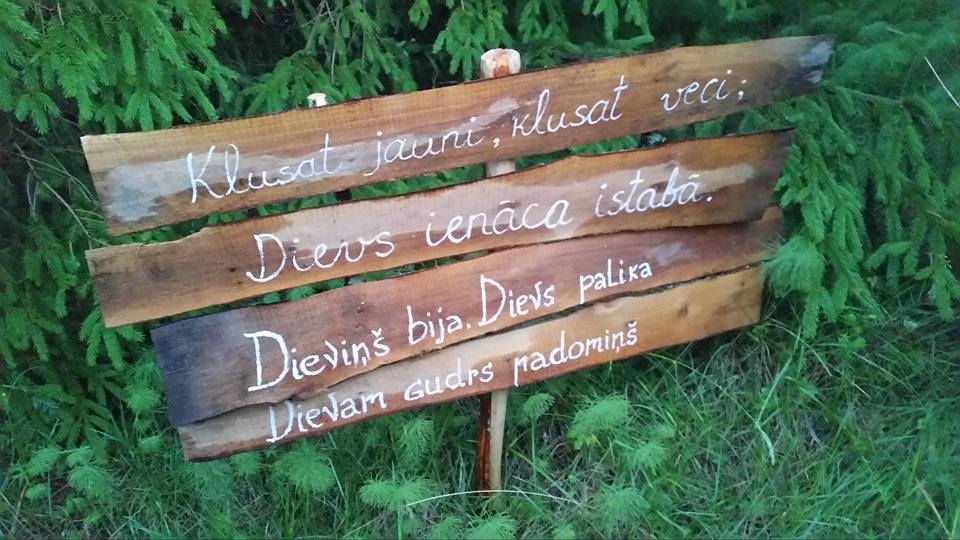 Klusat jauni, klusat veci;
Dievs ienāca istabā.
Dieviņš bija. Dievs palika
Dievam gudrs padomiņš